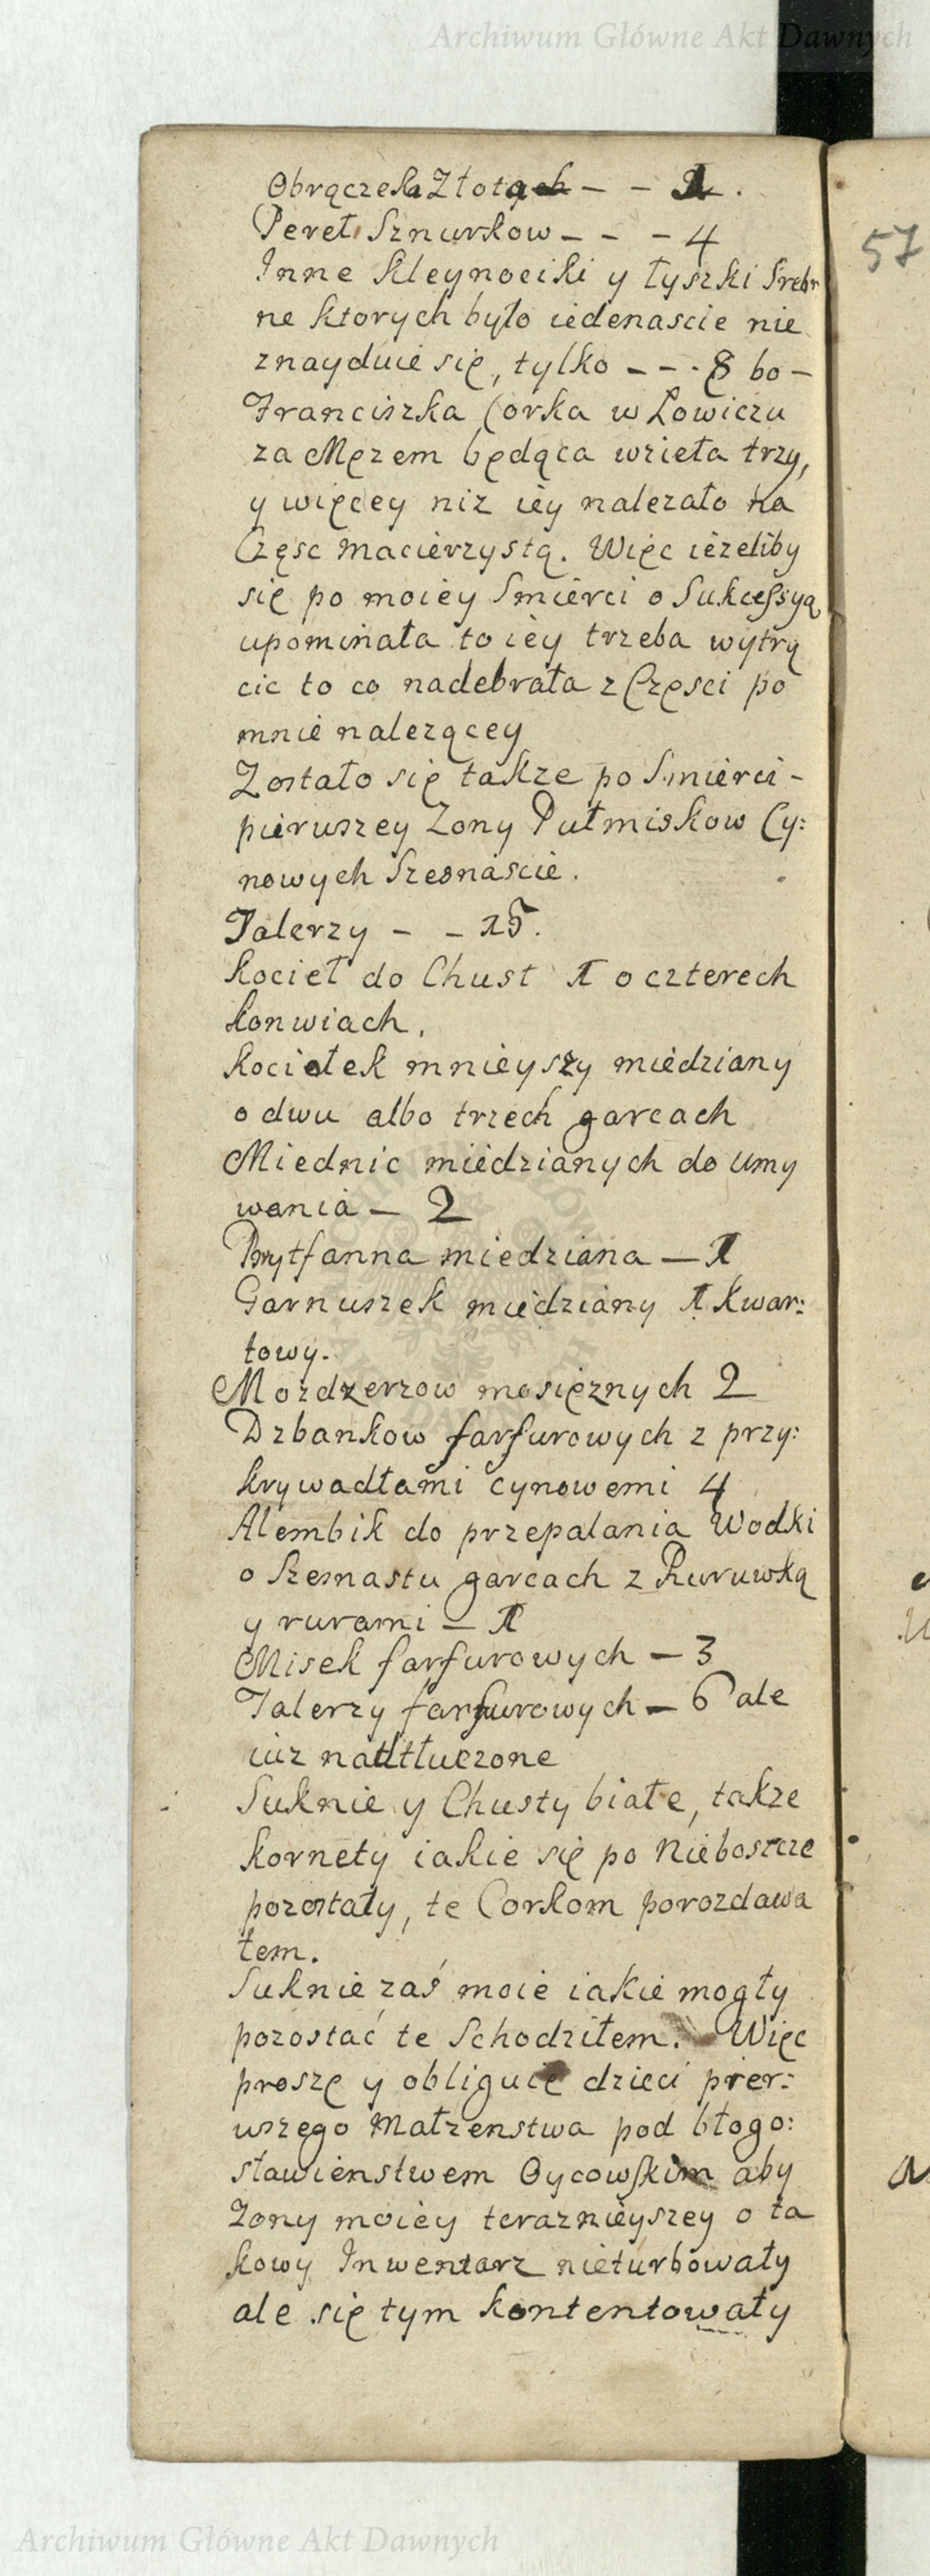 Archiwum Główne Akt Dawnych
Obrączek Złota – – 1.
Pereł Sznurkow – – – 4
57
Inne kleynociki y łyszki Srebr
ne ktorych było iedenascie nie
znayduie się, tylko – – . 8 bo –
Franciszka Corka w Łowiczu
za Męzem będąca wzieła trzy,
y więcey niz iey nalezało na
Częsc macierzystą. Więc iezeliby
się po moiey Smierci o Sukcessyą
upominała to iey trzeba wytrą
cic to co nadebrała z Częsci po
mnie nalezącey
Zostało się takze po Smierci –
pierwszey Zony Putmiskow Cy:
nowych Szesnascie.
Talerzy – – 15.
kocieł do Chust 1 o czterech
konwiach.
kociołek mnieyszy miedziany
o dwu albo trzech garcach
Miednic miedzianych do umy
wania – 2
Brytfanna miedziana – 1
Garnuszek miedziany 1 kwar:
towy.
Mozdzerzow mosięznych 2
Dzbankow farfurowych z przy:
krywadłami cynowemi 4
Alembik do przepalania Wodki
o Szesnastu garcach z Ruruwką
y rurami – 1
Misek farfurowych – 3
Talerzy farfurowych – 6 ale
iuz nadtłuczone
Suknie y Chusty białe, takze
kornety iakie się po Nieboszcze
pozostały, te Corkom porozdawa
łem.
Suknie zaś moie iakie mogły
pozostać te Schodziłem. Więc
proszę y obliguię dzieci pier:
wszego Małzenstwa pod błogo:
sławienstwem Oycowskim aby
Zony moiey teraznieyszey o ta
kowy Inwentarz nieturbowały
ale się tym kontentowały
Archiwum Główne Akt Dawnych